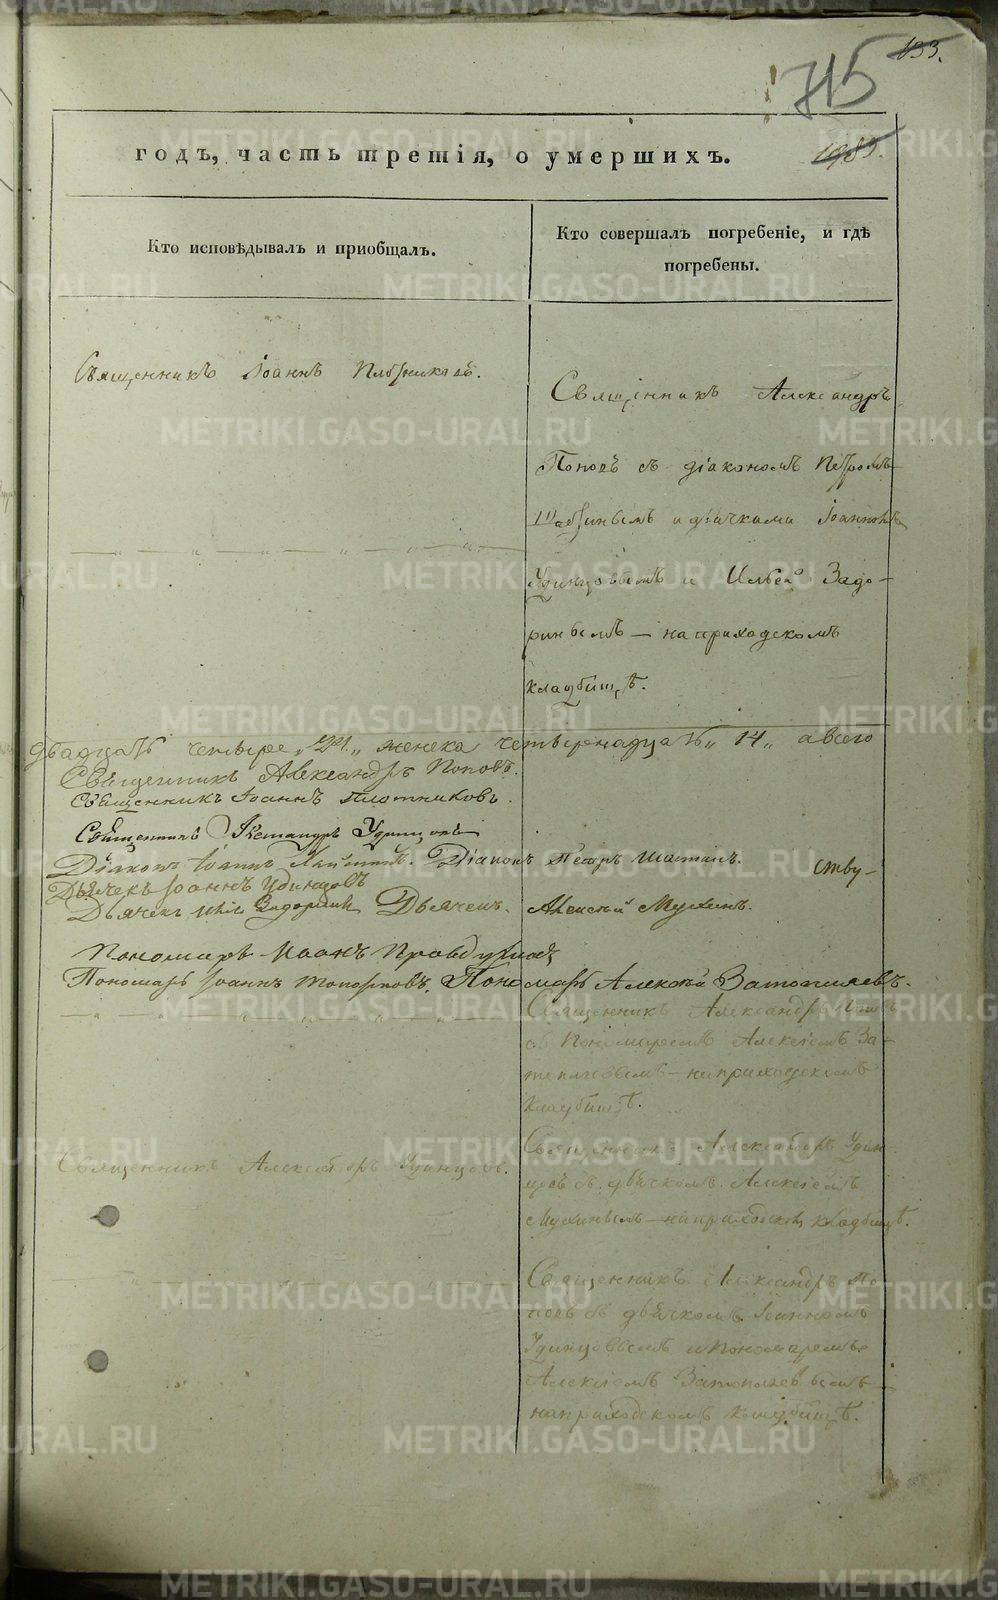 133.
715
1985.
годъ, часть третія, о умершихъ.
Кто исповѣдывалъ и пріобщалъ.
Кто совершалъ погребеніе, и гдѣ
погребены.
Священникъ Іоаннъ Плотниковъ.
Священникъ Александръ
Поповъ съ діакономъ Петромъ
и дьячками Іоанномъ
Удинцовымъ и Ильей Задо-
ринымъ — на приходскомъ
кладбищѣ.
двадцать четыре „24„ женска четыренадцать „14„ а всего
Священникъ Александръ Поповъ.
Священникъ Іоаннъ Плотниковъ.
Священникъ Удинцовъ
Діаконъ Іоаннъ Діаконъ Петръ
ству-
Дьячекъ Іоаннъ Удинцовъ
Дьячекъ Илья Задоринъ Дьячекъ Алексѣй Мухинъ.
Пономарь Иоанъ
Пономарь Іоаннъ Топорковъ. Пономарь Алексѣй Затопляевъ.
Священникъ Александръ Поповъ
съ Пономаремъ Алексіемъ За-
— на приходскомъ
кладбищѣ.
Священникъ Александръ Удинцовъ.
Священникъ Александръ Удин-
цовъ съ дьячкомъ Алексіемъ
Мухинымъ — на приходскомъ кладбищѣ.
Священникъ Александръ По-
повъ съ дьячкомъ Іоанномъ
Удинцовымъ и Пономаремъ
Алексіемъ Затопляевымъ —
на приходскомъ кладбищѣ.
METRIKI.GASO-URAL.RU